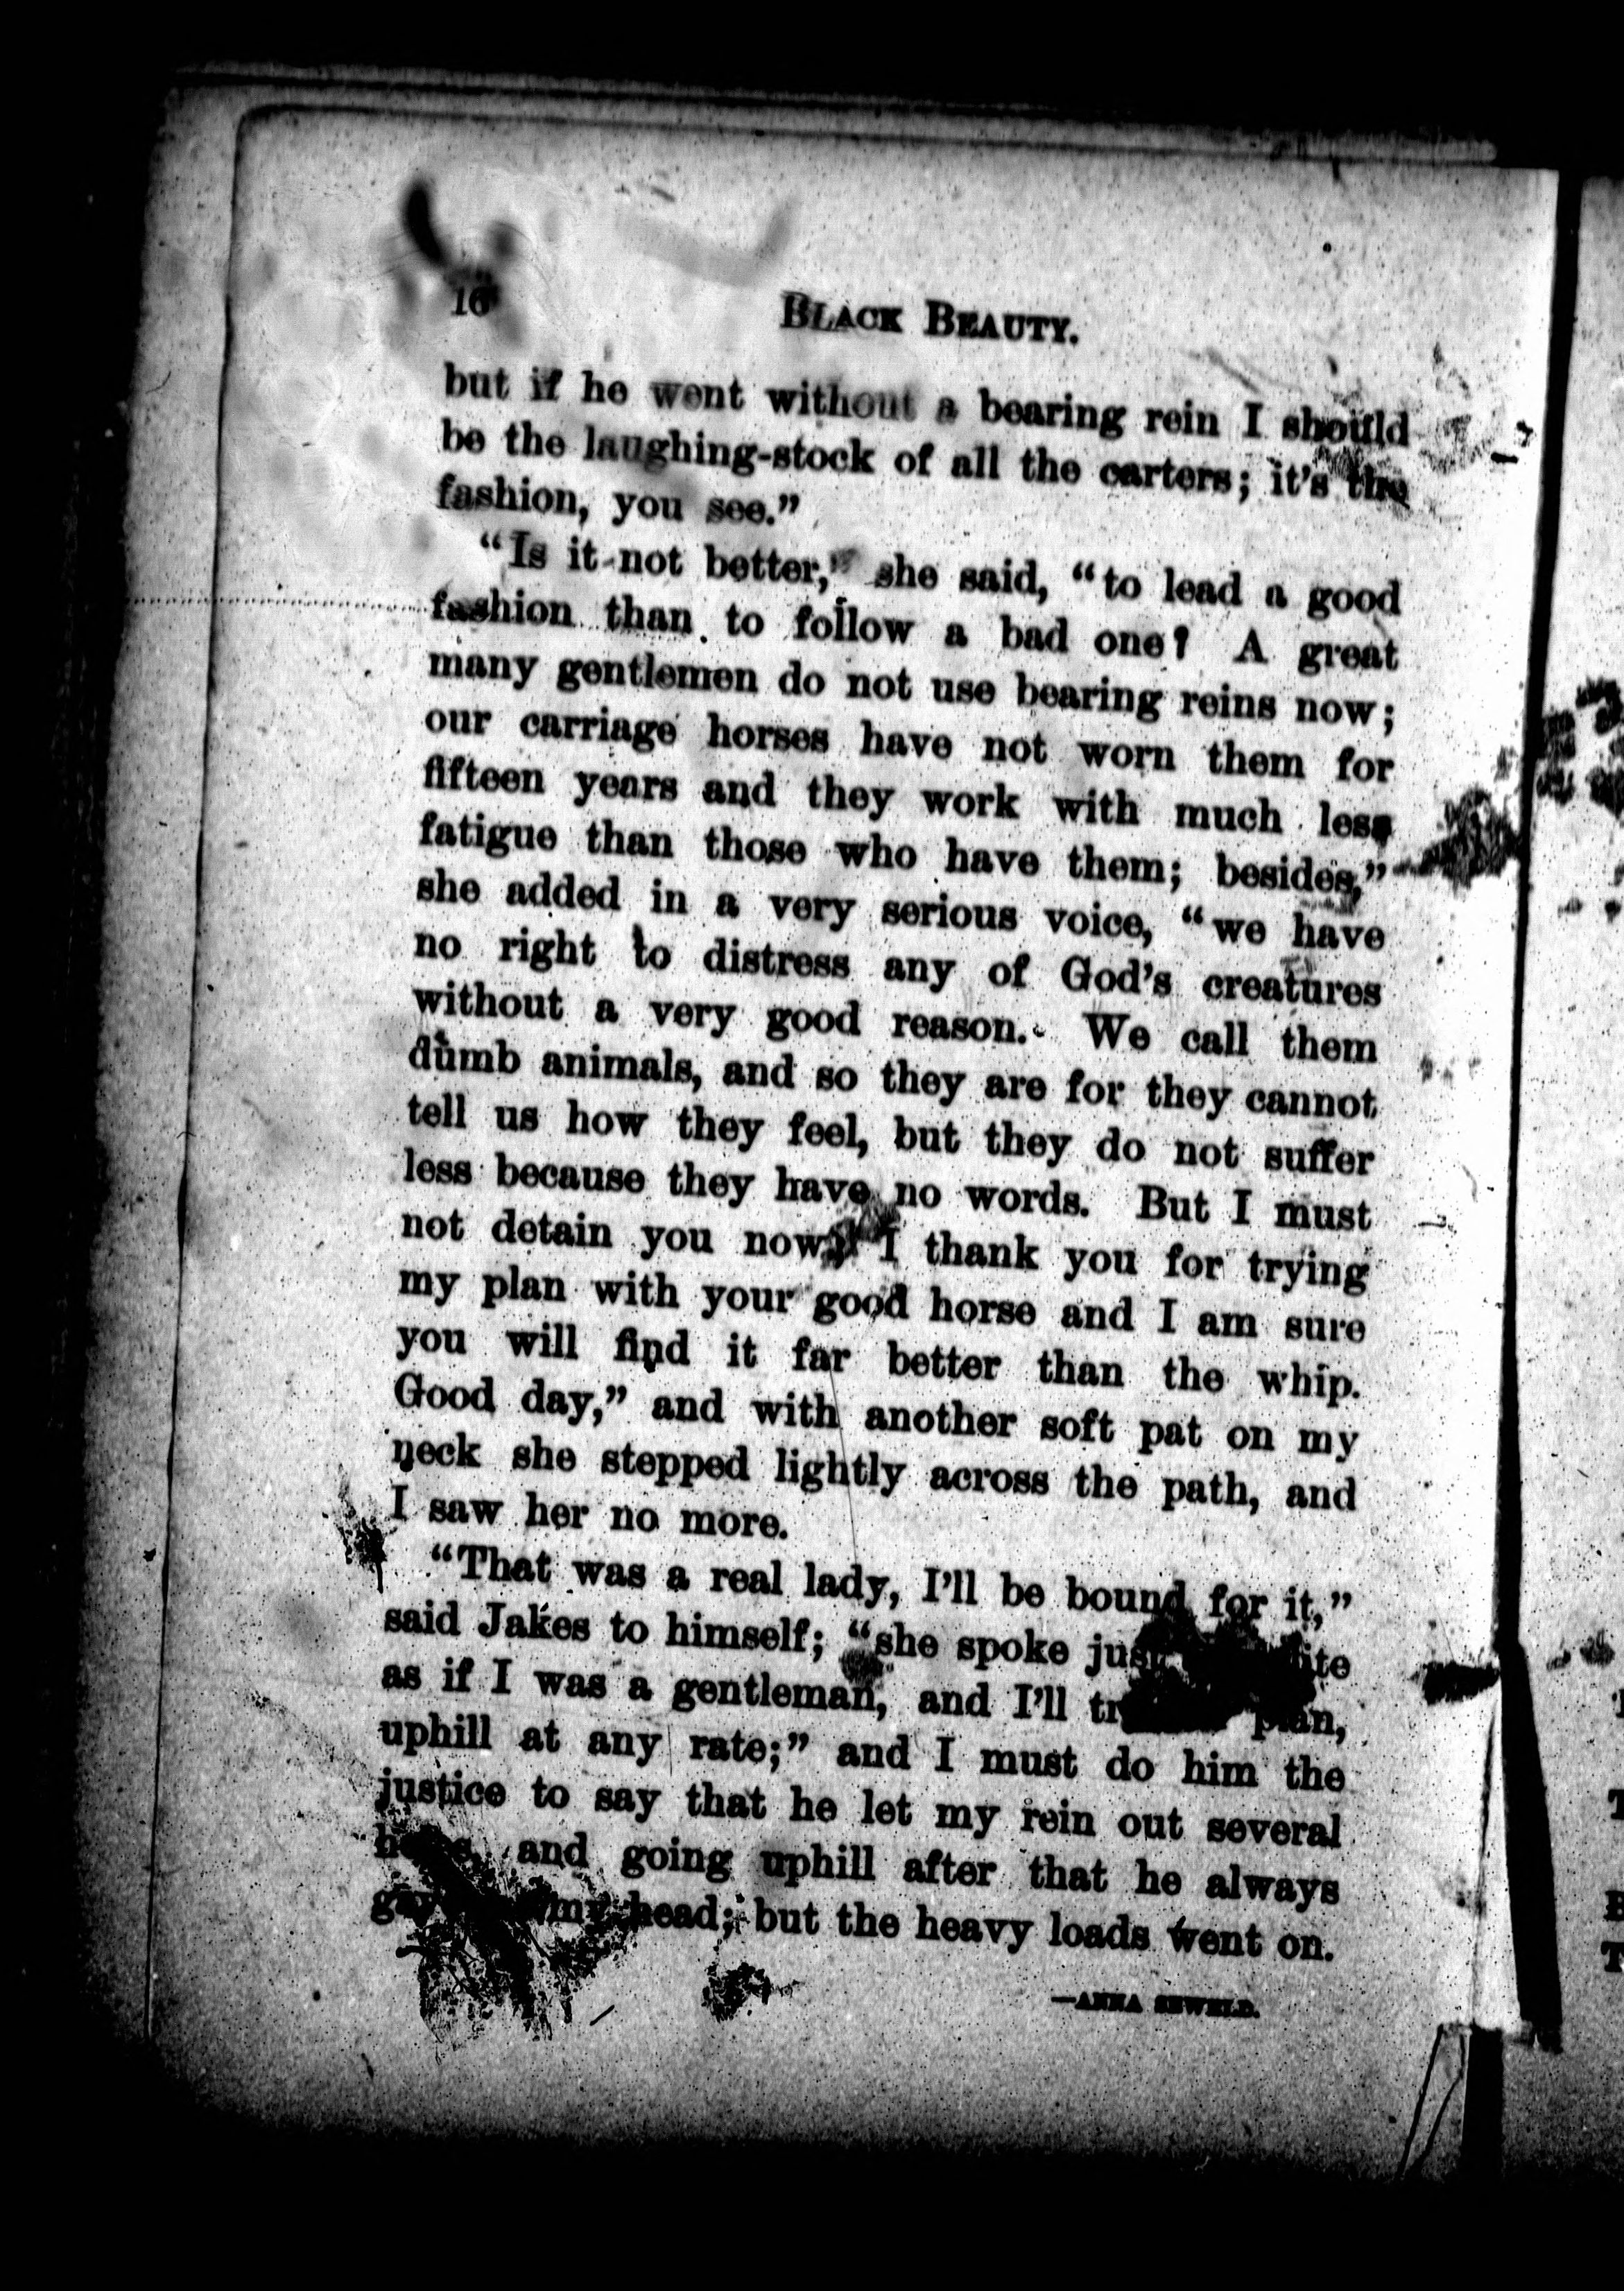 16
BLACK BEAUTY.
but if he went without a bearing rein I should
be the laughing-stock of all the carters; it's the
fashion, you see.”
“Is it not better,” she said, “to lead a good
fashion than to follow a bad one? A great
many gentlemen do not use bearing reins now;
our carriage horses have not worn them for
fifteen years and they work with much less
fatigue than those who have them; besides,”
she added in a very serious voice, “we have
no right to distress any of God's creatures
without a very good reason. We call them
dumb animals, and so they are for they cannot
tell us how they feel, but they do not suffer
less because they have no words. But I must
not detain you now; I thank you for trying
my plan with your good horse and I am sure
you will find it far better than the whip.
Good day,” and with another soft pat on my
neck she stepped lightly across the path, and
I saw her no more.
“That was a real lady, I'll be bound for it,”
said Jakes to himself; “she spoke just
as if I was a gentleman, and I'll plan,
uphill at any rate;” and I must do him the
justice to say that he let my rein out several
and going uphill after that he always
my head; but the heavy loads went on.
—ANNA SEWELL.